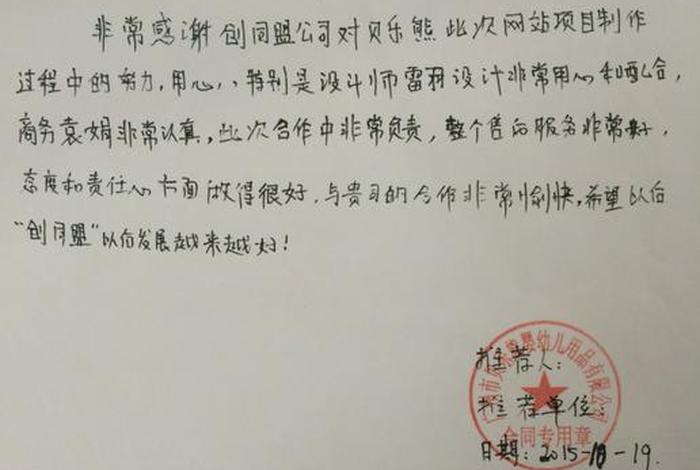 非常感谢创同盟公司对贝乐熊此次网站项目制作
过程中的努力,用心,特别是设计师雷羽设计非常用心和配合,
商务袁娟非常认真,此次合作中非常负责,整个售后服务非常好,
态度和责任心方面做得很好,与贵司的合作非常愉快,希望以后
"创同盟"以后发展越来越好!
推荐人:
推荐单位:
日期:2015-10-19.
广州市贝乐熊婴幼儿用品有限公司
合同专用章